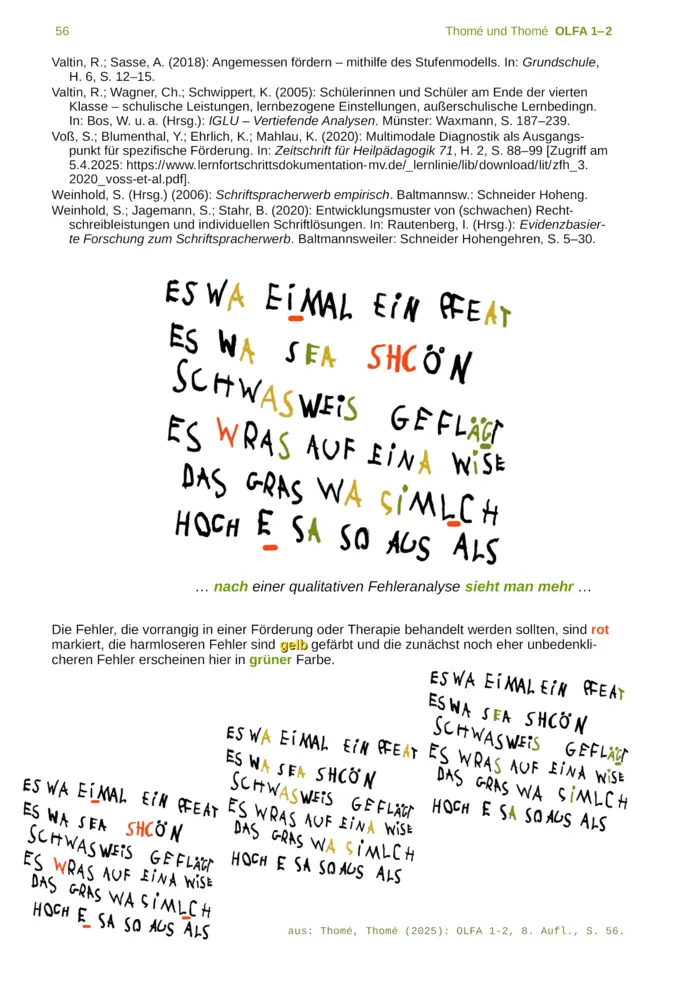 56
Thomé und Thomé OLFA 1–2
Valtin, R.; Sasse, A. (2018): Angemessen fördern – mithilfe des Stufenmodells. In: Grundschule,
H. 6, S. 12–15.
Valtin, R.; Wagner, Ch.; Schwippert, K. (2005): Schülerinnen und Schüler am Ende der vierten
Klasse – schulische Leistungen, lernbezogene Einstellungen, außerschulische Lernbedingn.
In: Bos, W. u. a. (Hrsg.): IGLU – Vertiefende Analysen. Münster: Waxmann, S. 187–239.
Voß, S.; Blumenthal, Y.; Ehrlich, K.; Mahlau, K. (2020): Multimodale Diagnostik als Ausgangs-
punkt für spezifische Förderung. In: Zeitschrift für Heilpädagogik 71, H. 2, S. 88–99 [Zugriff am
5.4.2025: https://www.lernfortschrittsdokumentation-mv.de/_lernlinie/lib/download/lit/zfh_3.
2020_voss-et-al.pdf].
Weinhold, S. (Hrsg.) (2006): Schriftspracherwerb empirisch. Baltmannsw.: Schneider Hoheng.
Weinhold, S.; Jagemann, S.; Stahr, B. (2020): Entwicklungsmuster von (schwachen) Recht-
schreibleistungen und individuellen Schriftlösungen. In: Rautenberg, I. (Hrsg.): Evidenzbasier-
te Forschung zum Schriftspracherwerb. Baltmannsweiler: Schneider Hohengehren, S. 5–30.
ES WA EiMAL EiN PFEAT
ES WA SEA SHCÖN
SCHWASWEiS GEFLÄGT
ES WRAS AUF EiNA WiSE
DAS GRAS WA SiMLCH
HOCH E SA SO AUS ALS
… nach einer qualitativen Fehleranalyse sieht man mehr …
Die Fehler, die vorrangig in einer Förderung oder Therapie behandelt werden sollten, sind rot
markiert, die harmloseren Fehler sind gelb gefärbt und die zunächst noch eher unbedenkli-
cheren Fehler erscheinen hier in grüner Farbe.
ES WA EiMAL EiN PFEAT
ES WA SEA SHCÖN
SCHWASWEiS GEFLÄGT
ES WRAS AUF EiNA WiSE
DAS GRAS WA SiMLCH
HOCH E SA SO AUS ALS
ES WA EiMAL EiN PFEAT
ES WA SEA SHCÖN
SCHWASWEiS GEFLÄGT
ES WRAS AUF EiNA WiSE
DAS GRAS WA SiMLCH
HOCH E SA SO AUS ALS
ES WA EiMAL EiN PFEAT
ES WA SEA SHCÖN
SCHWASWEiS GEFLÄGT
ES WRAS AUF EiNA WiSE
DAS GRAS WA SiMLCH
HOCH E SA SO AUS ALS
aus: Thomé, Thomé (2025): OLFA 1-2, 8. Aufl., S. 56.